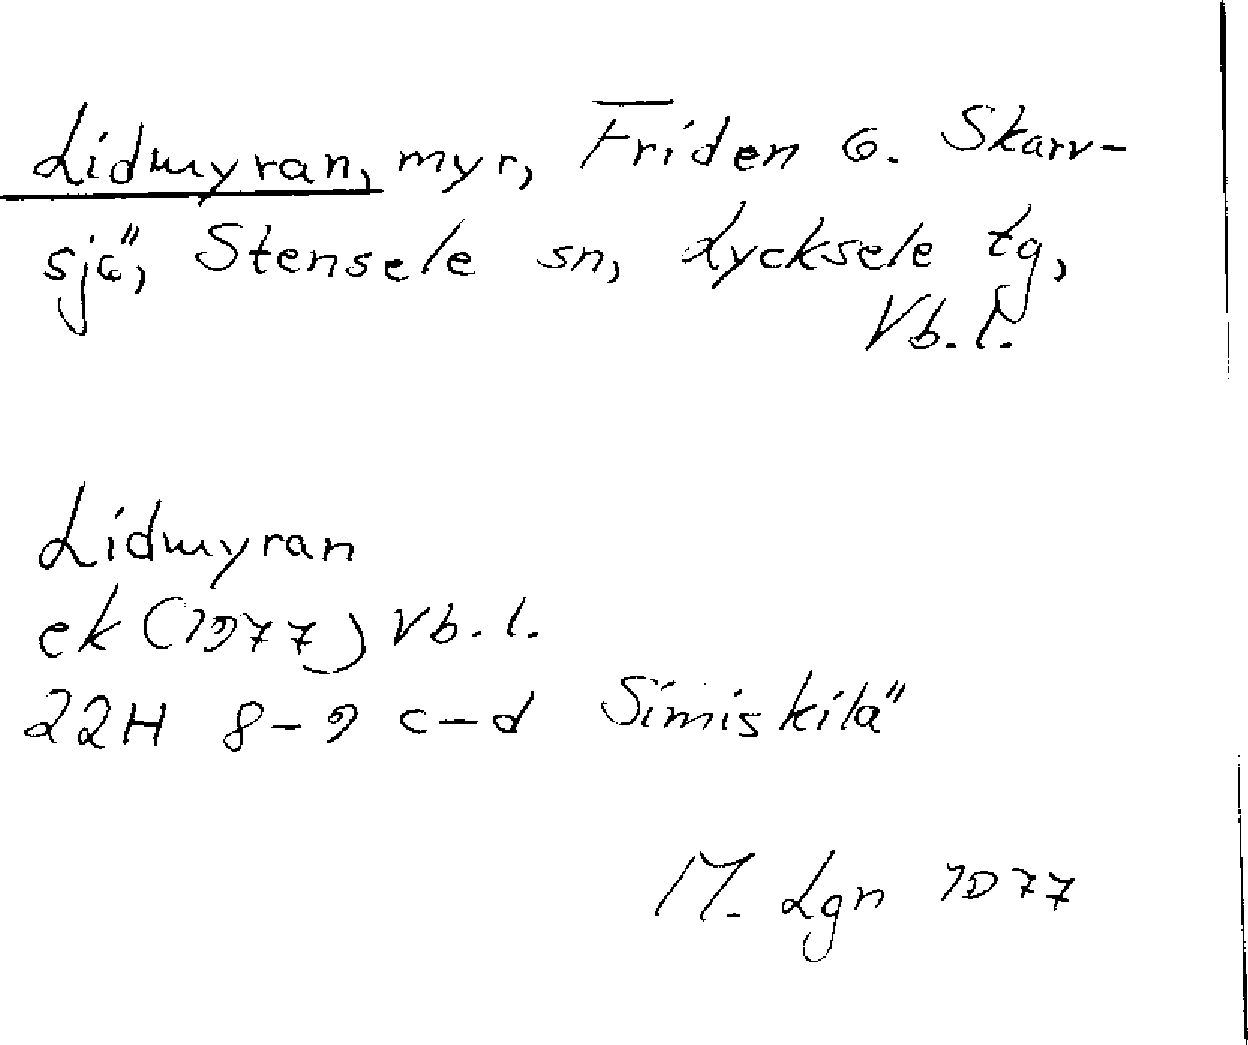 Lidmyran, myr, Friden o. Skarv-
sjö, Stensele sn, Lycksele tg,
Vb. l.
Lidmyran
ek (1977) Vb. l.
22H 8-9 c-d Simiskilä
M. Lgn 1977